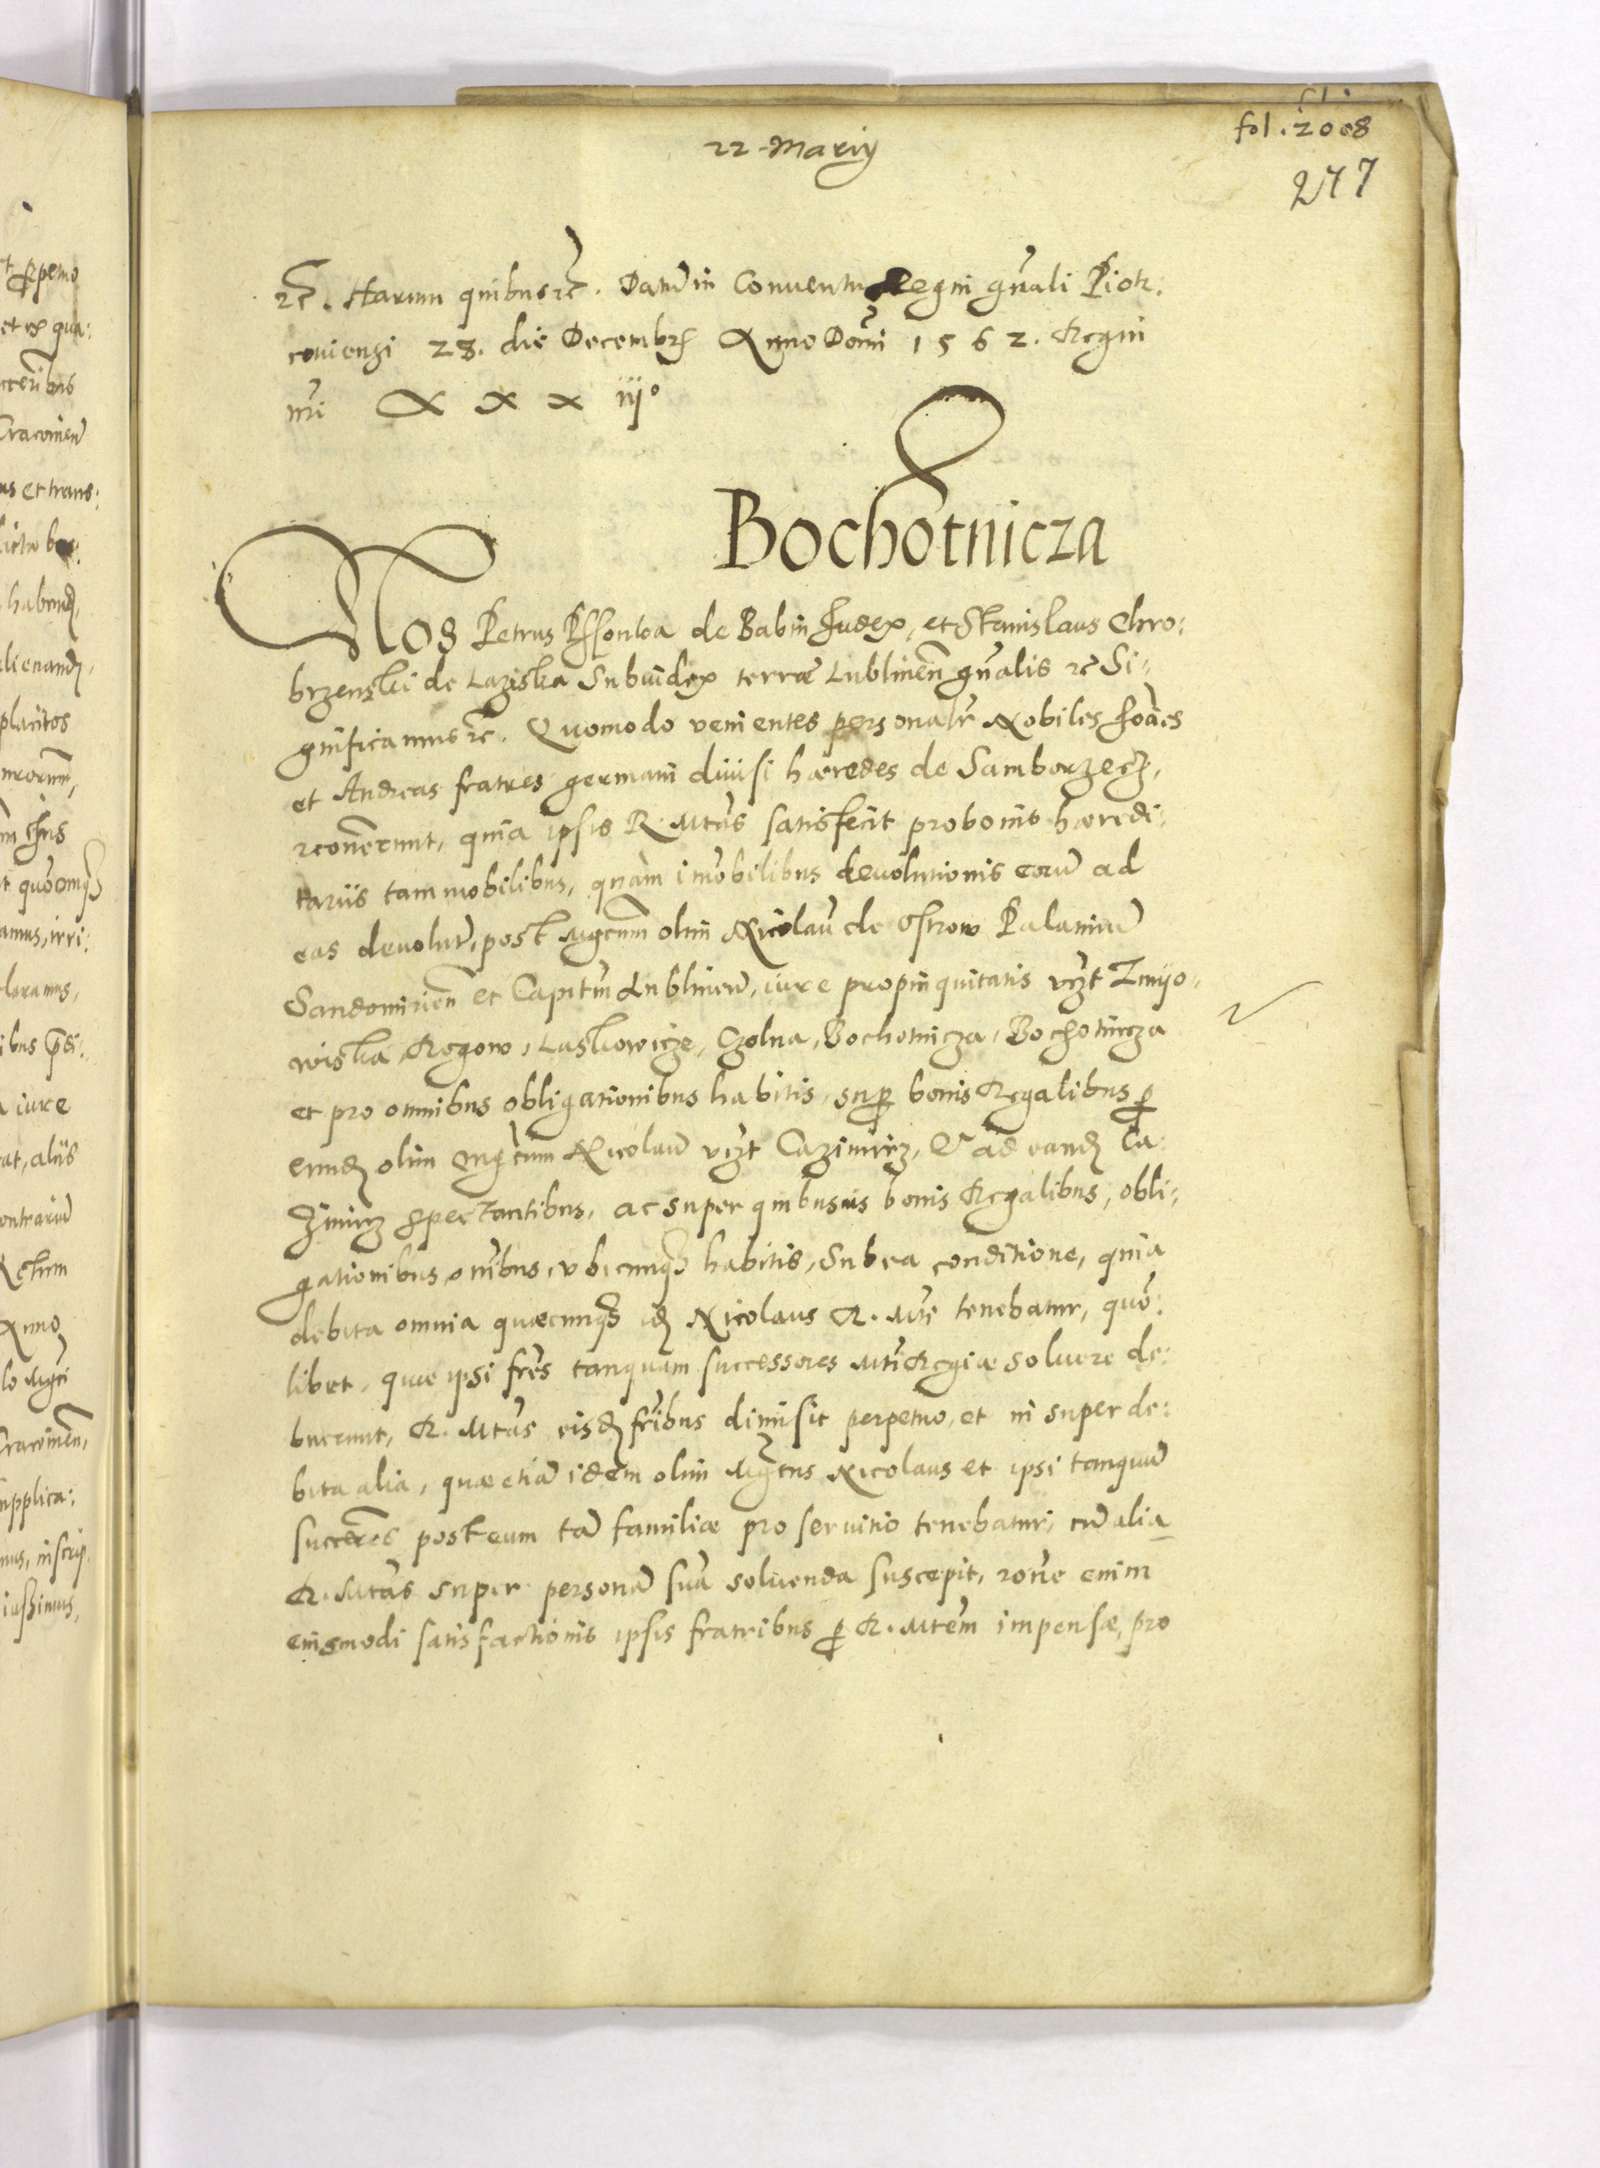 fol. 2008
22 Marcij
277
rc. Harum quibus rc. Datu in Conuentu Regni gnali Piotr:
couiensi 28. die Decembr Anno Domi 1562. Regni
nri XXX iij°
Bochotnicza
Nos Petrus Pssonka de Babin Judex, et Stanislaus Chro:
brzenski de Laziska Subiudex terræ Lublinen gnalis rc Si:
gnificamus rc. Quomodo venientes personalr Nobiles Joaēs
et Andreas fratres germani diuisi hæredes de Samborzecz,
rconerunt, quia ipsis R. Mtas satisfecit pro bonis hæredi:
tariis tam mobilibus, quàm imobilibus deuolutionis eoru ad
eas deuolut, post Mgcum olim Nicolau de Ostrow Palatinu
Sandomirien et Capitm Lublinen, iure propinquitatis vzt Zmijo,
wiska Rogow, Laskowicze, Czolna, Bochotnicza, Bochotnicza
et pro omnibus obligationibus habitis, sup bonis Regalibus p
eund olim Mgcum Nicolau vzt Cazimirz, & ad eand Ca:
zimirz spectantibus, ac super quibusuis bonis Regalibus, obli:
gationibus onibus, vbicunq habitis, Sub ea conditione, quia
debita omnia quæcunq id Nicolaus R. Mti tenebatur, quo:
libet, quæ ipsi frēs tanquam successores Mti Regiæ soluere de:
buerunt, R. Mtas eisd fribus dimisit perpetuo, et in super de:
bita alia, quæ etia idem olim Mgcus Nicolaus et ipsi tanqua
succeres post eum ta familiæ pro seruitio tenebatur, cu alia
R. Mtas super persona sua soluenda suscepit, rone enim
eiusmodi satisfactionis ipsis fratribus p R. Mtem impensæ, pro